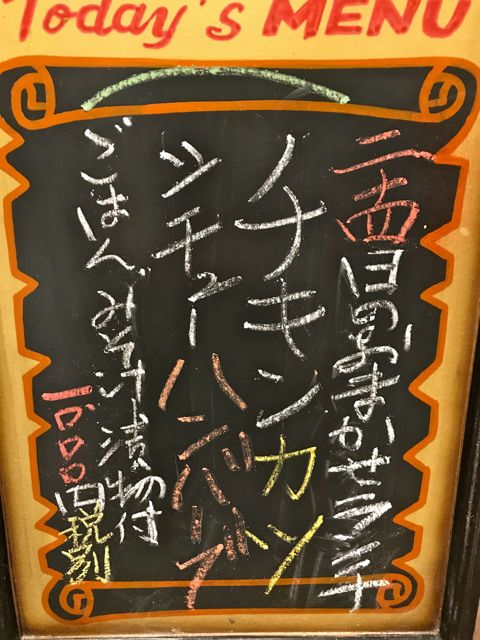 Today's MENU
二十四日のおまかせランチ
チキンカツ
シチューハンバーグ
ごはんみそ汁漬物付
一〇〇〇円税別